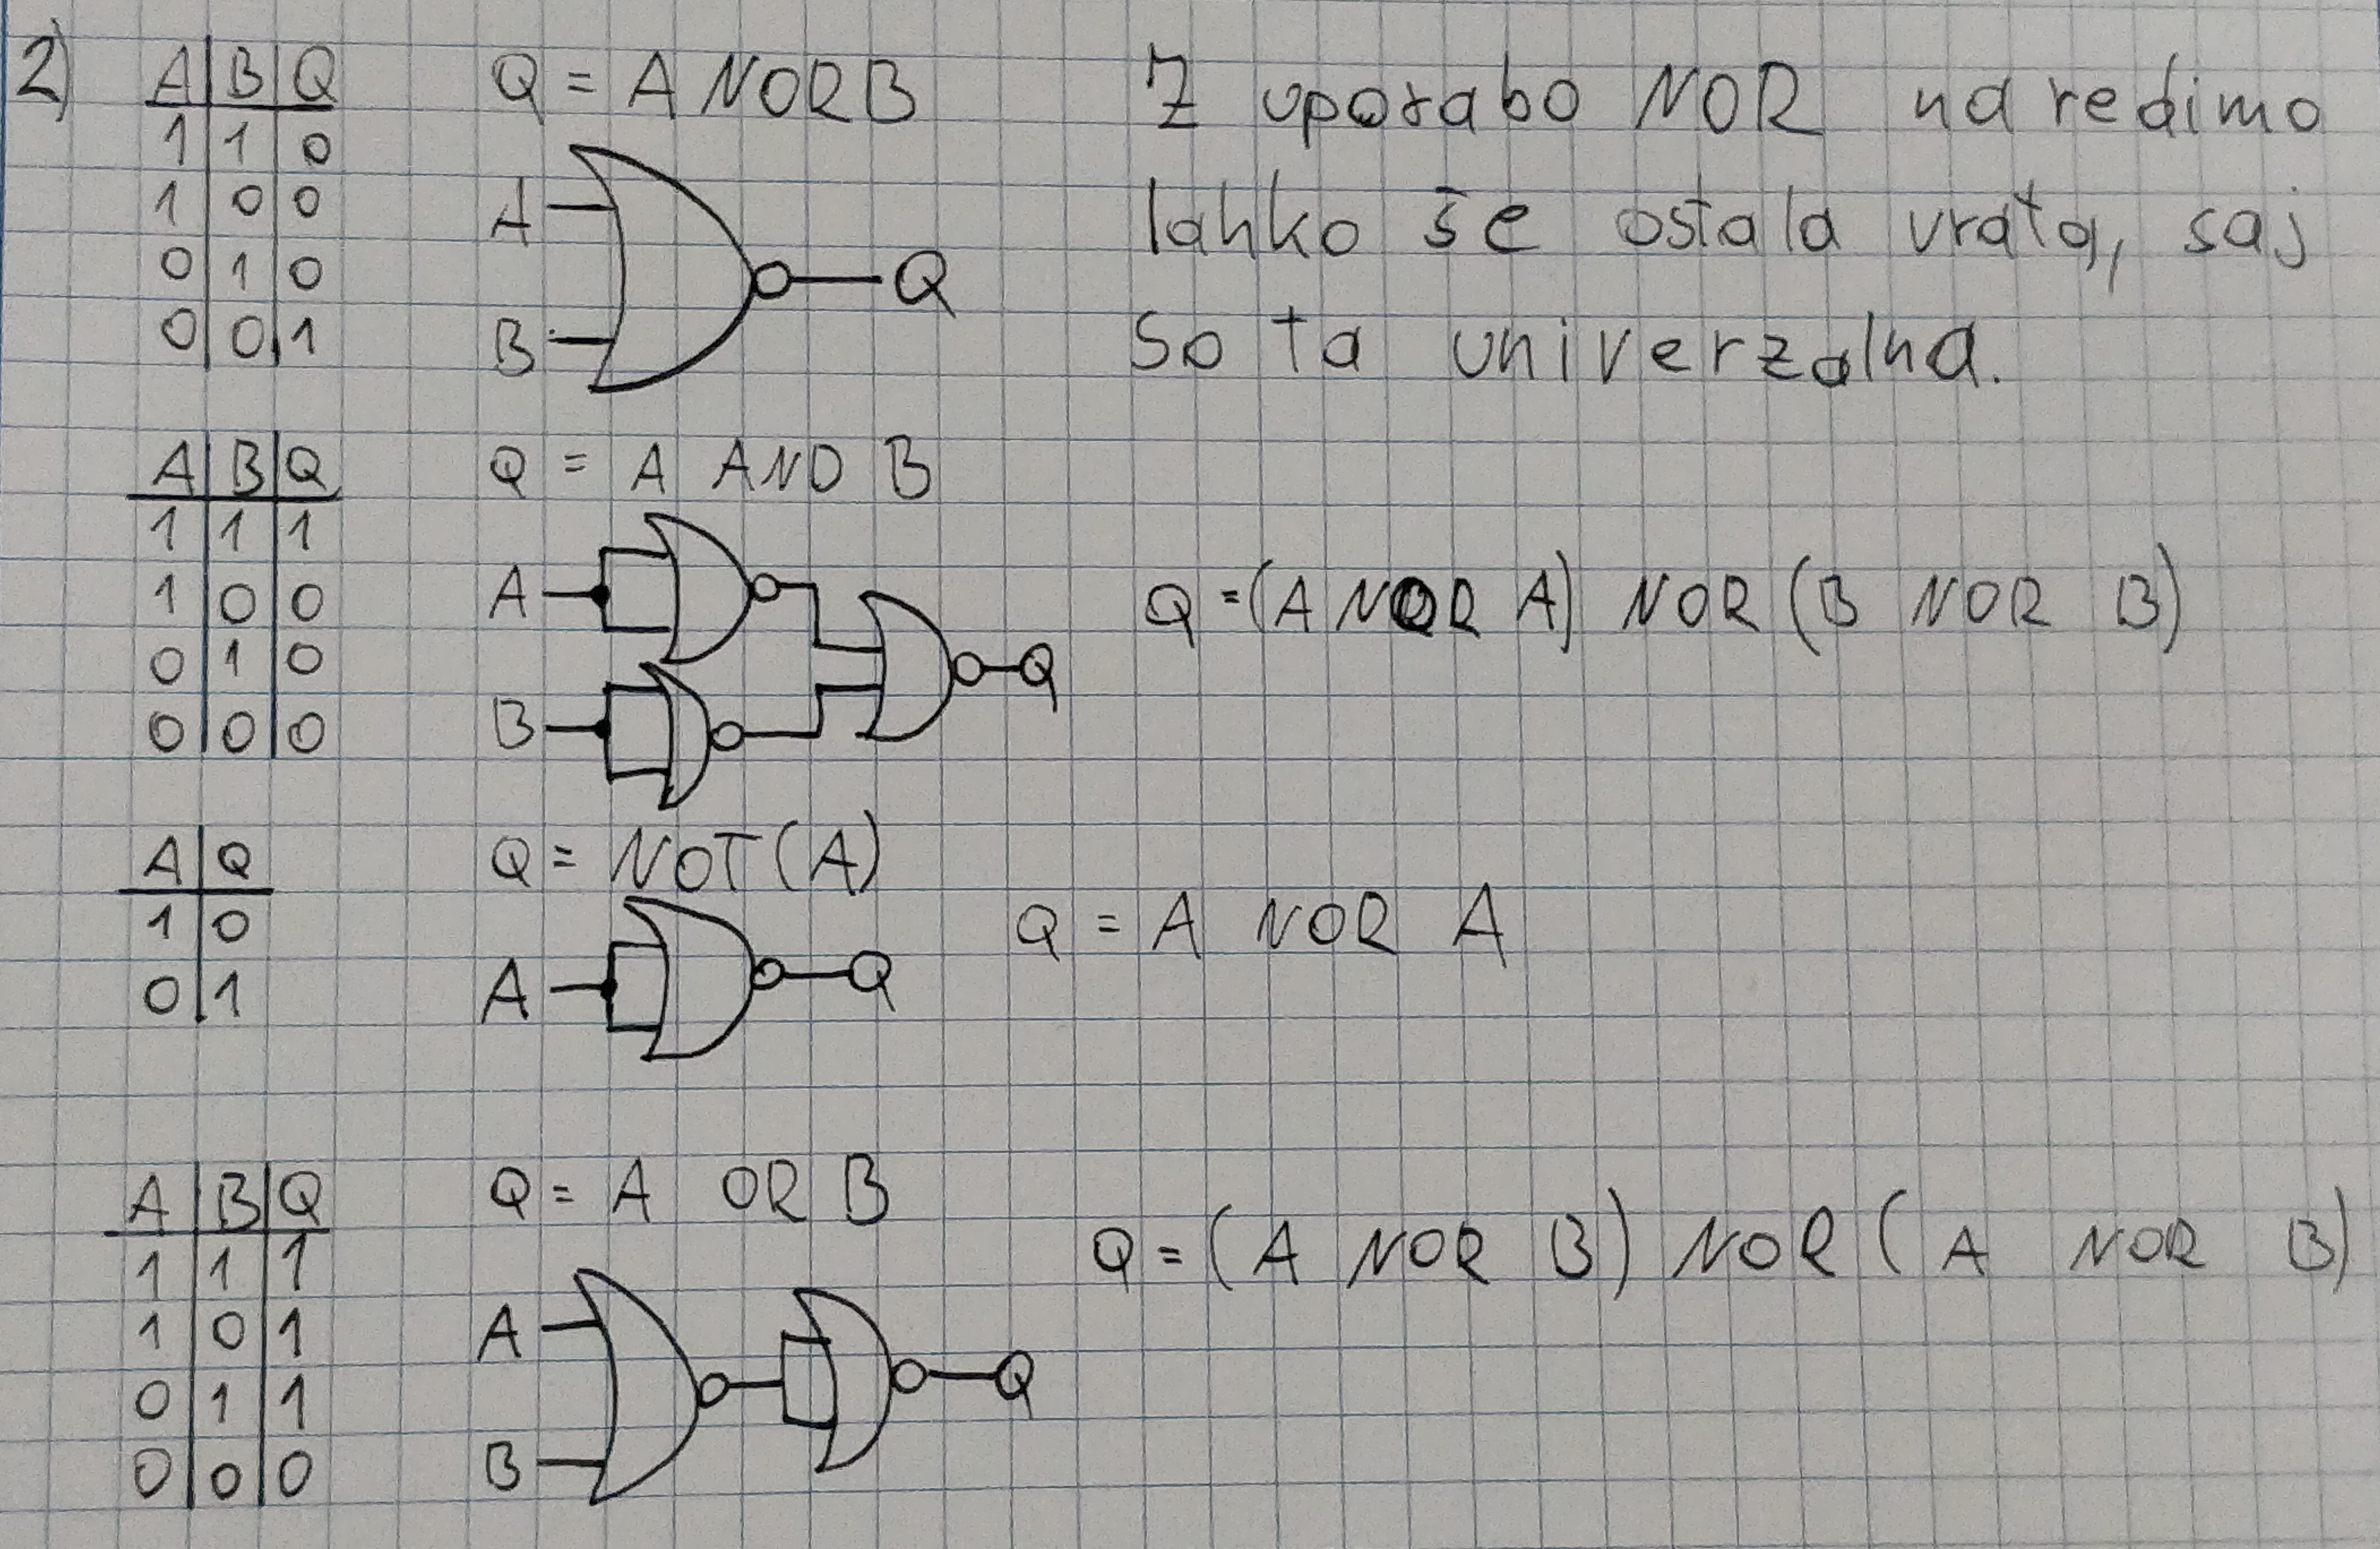 2)
A B Q
1 1 0
1 0 0
0 1 0
0 0 1
Q = A NOR B
A
B
Q
Z uporabo NOR naredimo
lahko še ostala vrata, saj
so ta univerzalna.
A B Q
1 1 1
1 0 0
0 1 0
0 0 0
Q = A AND B
A
B
Q
Q = (A NOR A) NOR (B NOR B)
A Q
1 0
0 1
Q = NOT (A)
A
Q
Q = A NOR A
A B Q
1 1 1
1 0 1
0 1 1
0 0 0
Q = A OR B
A
B
Q
Q = (A NOR B) NOR (A NOR B)